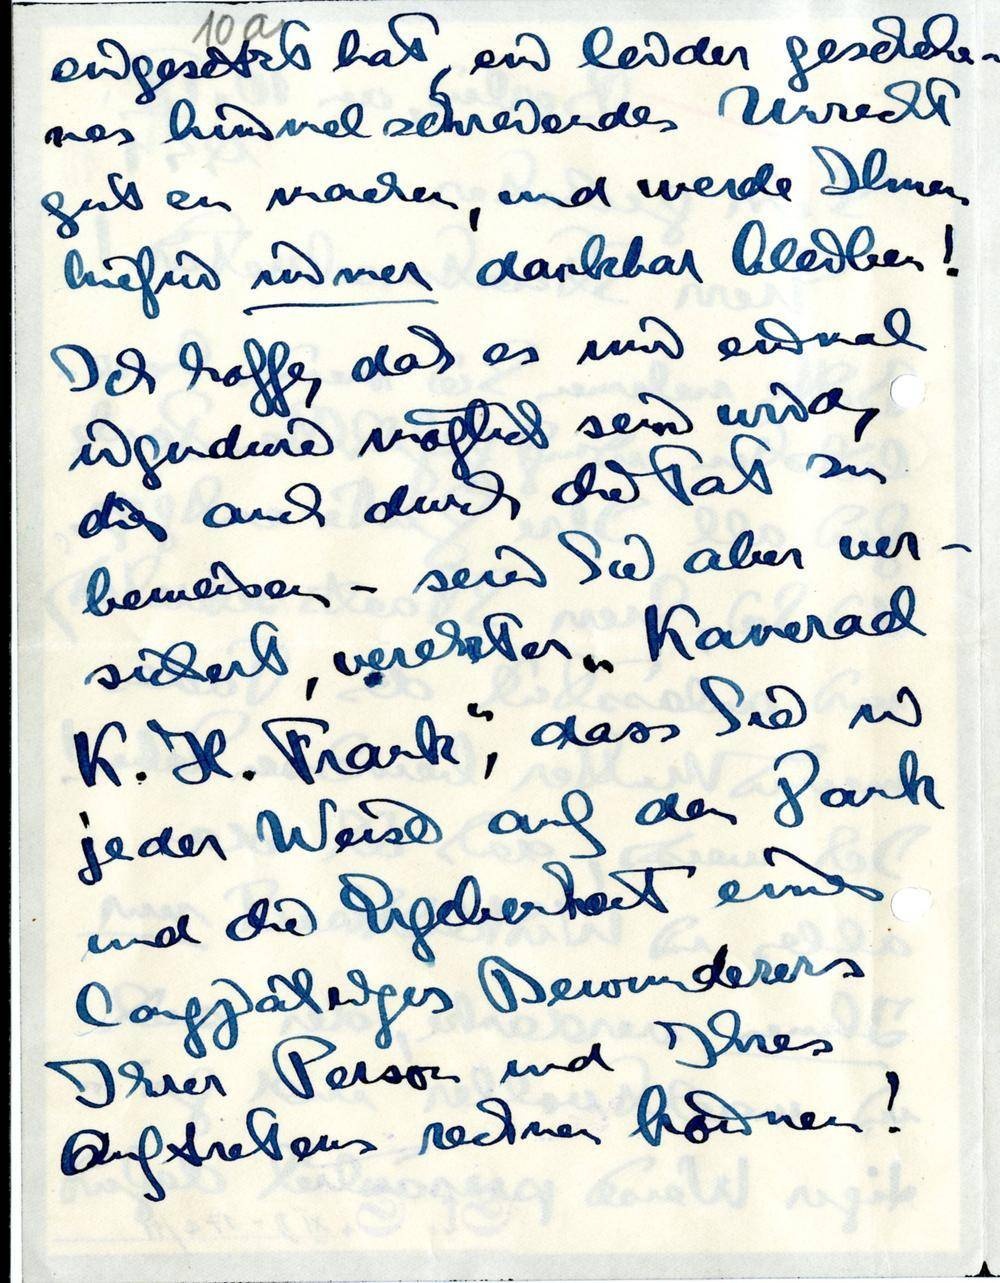 10a
eingesetzt hat, ein leider geschehe-
nes himmelschreiendes Unrecht
gut zu machen, und werde Ihnen
hiefür immer dankbar bleiben!
Ich hoffe, das es mir einmal
irgendwie möglich sein wird,
dies auch durch die Tat zu
beweisen – seien Sie aber ver-
sichert, verehrter „Kamerad
K. H. Frank“, dass Sie in
jeder Weise auf den Dank
und die Ergebenheit eines
langjährigen Bewunderers
Ihrer Person und Ihres
Auftretens rechnen können!